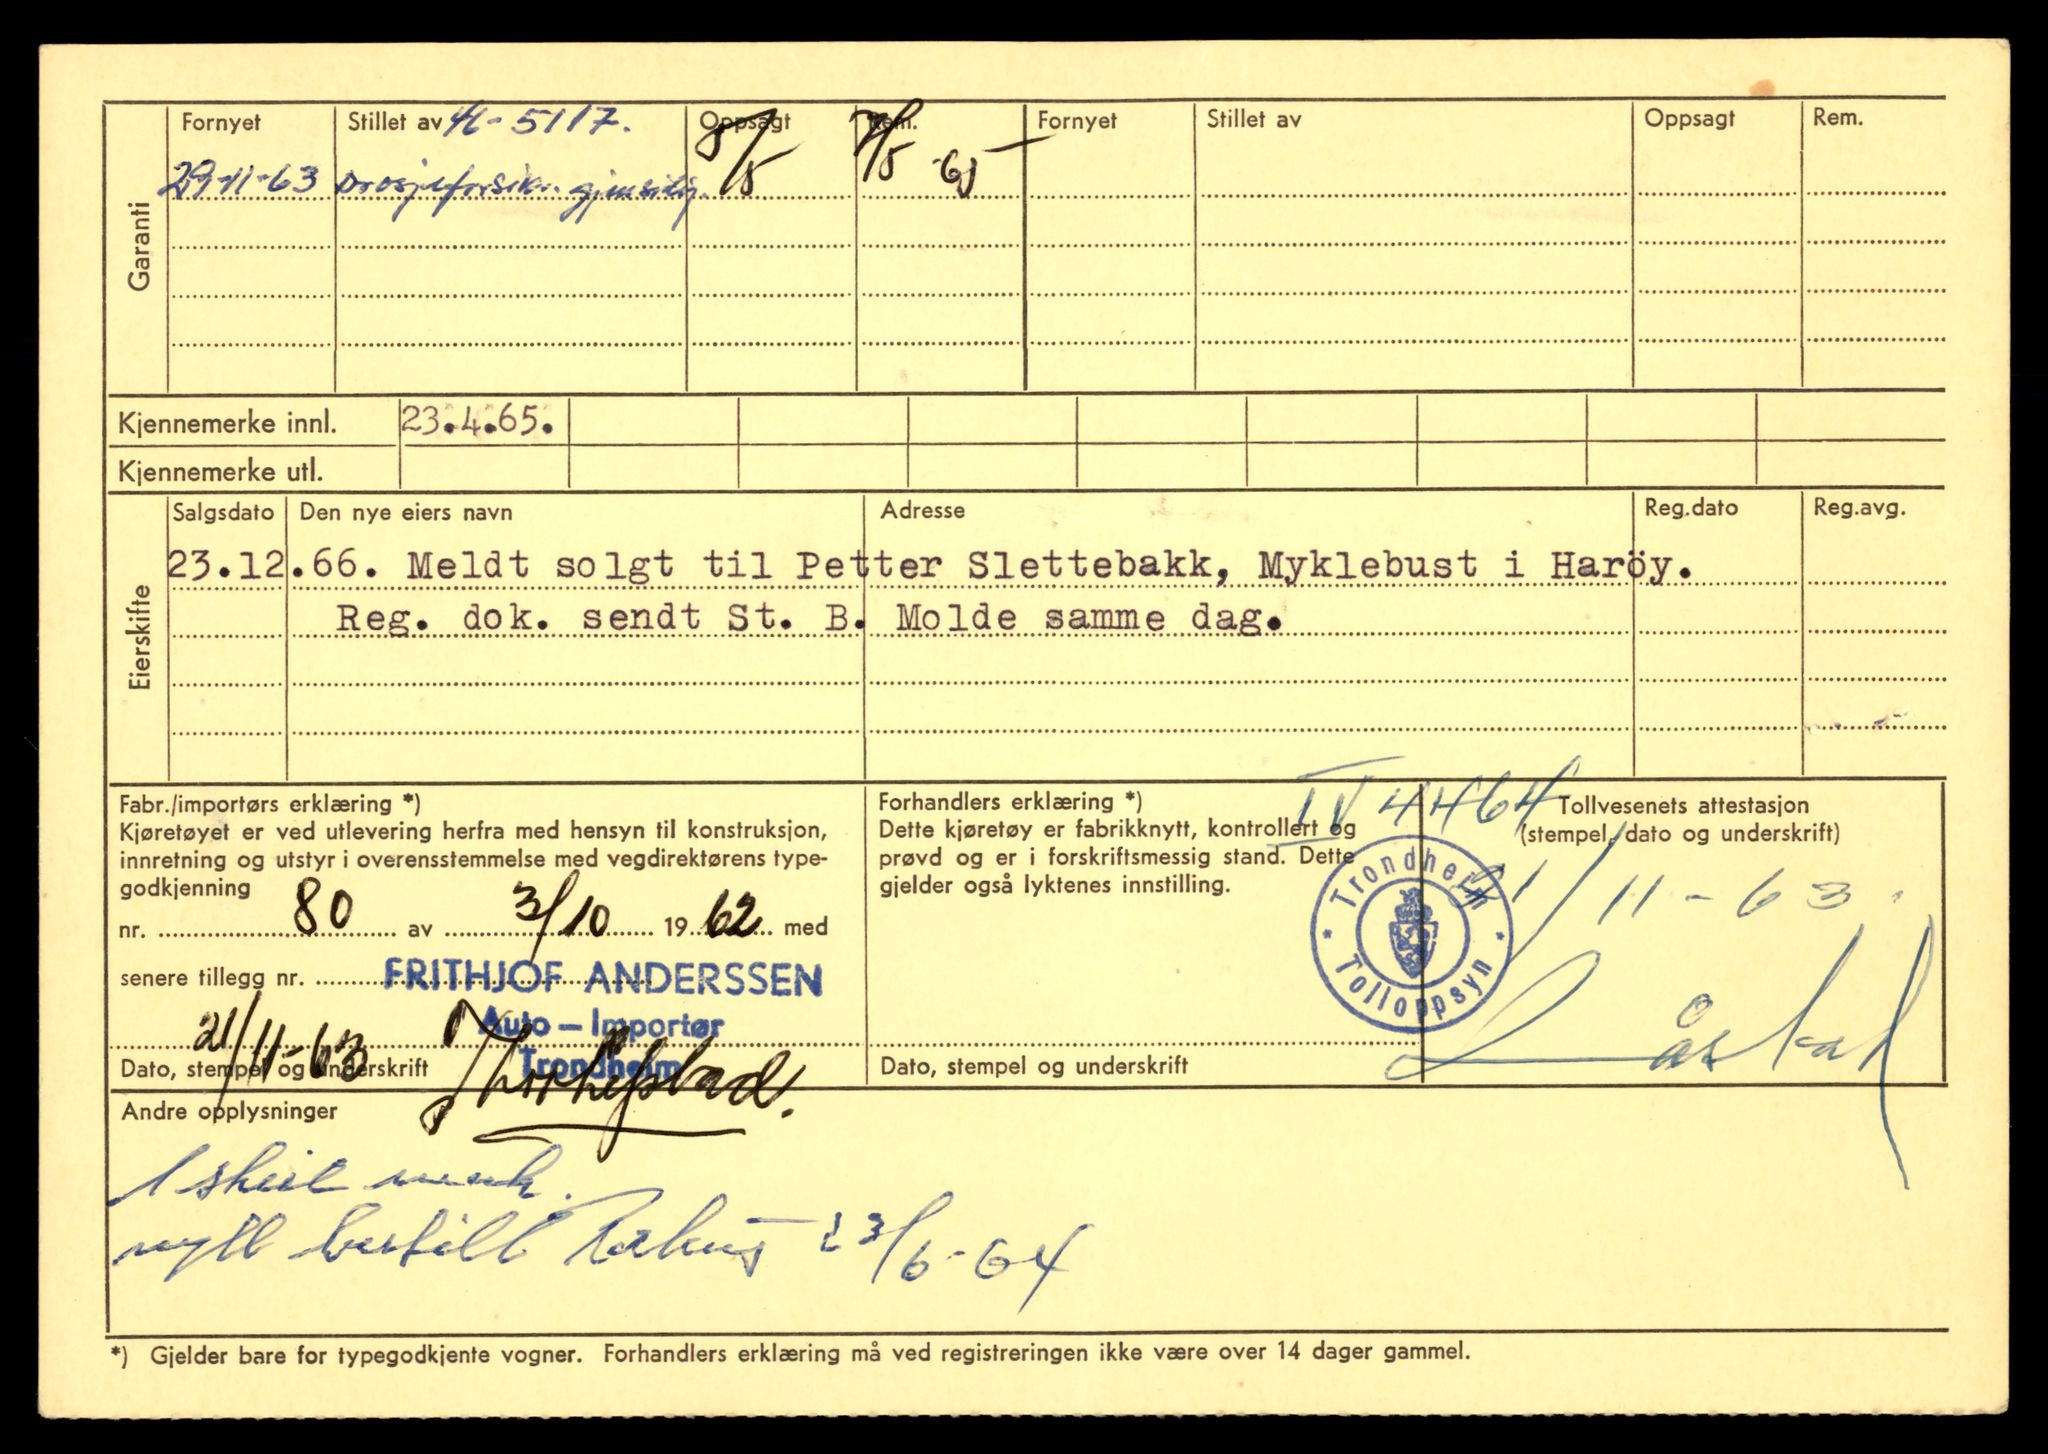 Garanti
Fornyet Stillet av 5117. Oppsagt Rem. Fornyet Stillet av Oppsagt Rem.
29-11-63 Drosjeforsikr. gjensidig. 8/5 7/5 -65
Kjennemerke innl. 23.4.65.
Kjennemerke utl.
Eierskifte
Salgsdato Den nye eiers navn Adresse Reg.dato Reg.avg.
23.12.66. Meldt solgt til Petter Slettebakk, Myklebust i Haröy.
Reg. dok. sendt St. B. Molde samme dag.
Fabr./importørs erklæring *)
Kjøretøyet er ved utlevering herfra med hensyn til konstruksjon,
innretning og utstyr i overensstemmelse med vegdirektørens type-
godkjenning
nr. 80 av 3/10 1962 med
senere tillegg nr.
FRITHJOF ANDERSSEN
Auto - Importør
Trondheim
21/11-63
Dato, stempel og underskrift
Forhandlers erklæring *)
Dette kjøretøy er fabrikknytt, kontrollert og
prøvd og er i forskriftsmessig stand. Dette
gjelder også lyktenes innstilling.
Dato, stempel og underskrift
IV 4464
Tollvesenets attestasjon
(stempel, dato og underskrift)
21/11-63.
* Trondheim *
Tolloppsyn
Andre opplysninger
23/6-64
*) Gjelder bare for typegodkjente vogner. Forhandlers erklæring må ved registreringen ikke være over 14 dager gammel.